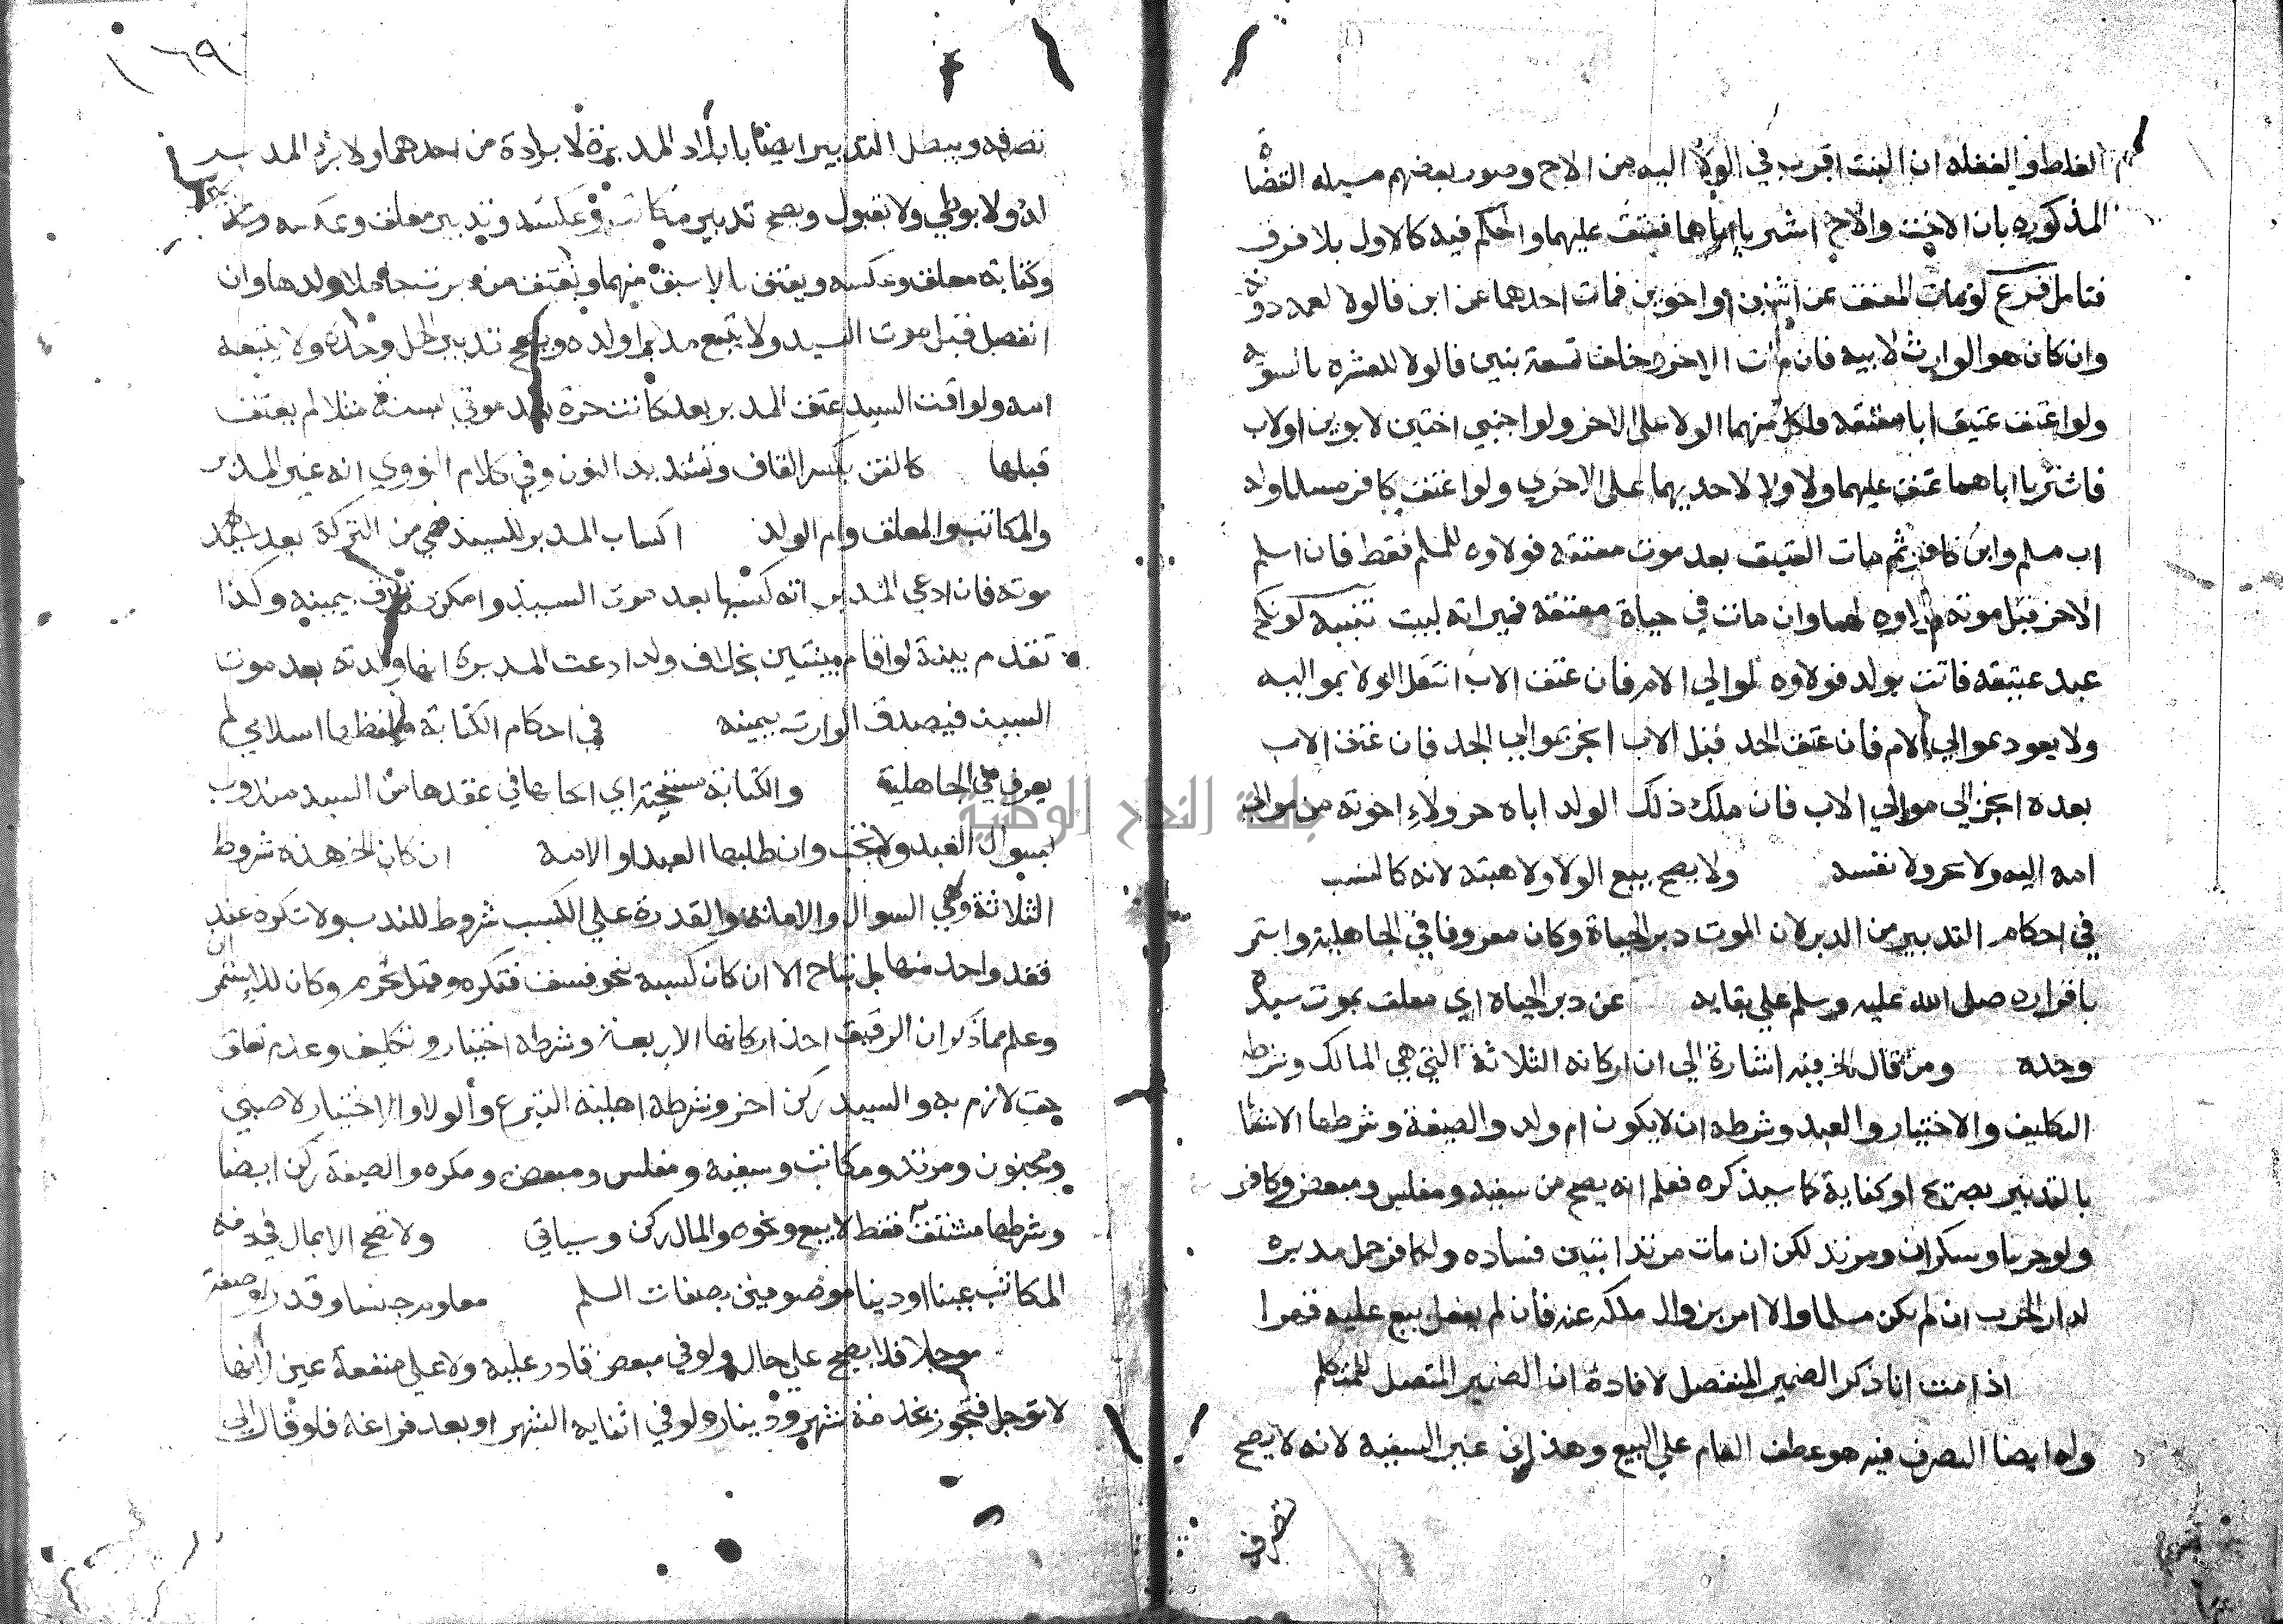 الغلط والغفله ان البنت اقرب في الولا اليه من الاخ وصور بعضهم مسيله القضا
المذكوره بان الاخت والاخ اشتريا اباهما فعتق عليهما والحكم فيه كالاول بلا فرق
فتامل فرع لو مات المعتق عن ابنين او اخوين فمات احدهما عن ابن فالولا لعمه دونه
وان كان هو الوارث لابيه فان مات الاخر وخلف تسعة بنين فالولا للعشره بالسويه
ولو اعتق عتيق ابا معتقه فلكل منهما الولا على الاخر ولو اجنبي اختين لابوين او لاب
فاشتريا اباهما عتق عليهما ولا ولا لاحديهما على الاخري ولو اعتق كافر مسلما وله
اب مسلم وابن كافر ثم مات العتيق بعد موت معتقه فولاوه للمسلم فقط فان اسلم
الاخر قبل موته فولاوه لهما وان مات في حياة معتقه فميراثه لبيت تنبيه لو نكح
عبد عتيقه فاتت بولد فولاوه لموالي الام فان عتق الاب انتقل الولا لمواليه
ولا يعود لموالي الام فان عتق الجد قبل الاب انجر لموالي الجد فان عتق الاب
بعده انجر الي موالي الاب فان ملك ذلك الولد اباه جر ولاء اخوته من موالي
امه اليه ولا يجر ولا نفسه ولا يصح بيع الولا ولا هبته لانه كالنسب
في احكام التدبير من الدبر لان الموت دبر الحياة وكان معروفا في الجاهلية واستمر
باقراره صلى الله عليه وسلم علي بقايه عن دبر الحياة اي معلق بموت سيده
وحده ومن قال الخ فيه اشارة الي ان اركانه الثلاثة التي هي المالك وشرطه
التكليف والاختيار والعبد وشرطه ان لا يكون ام ولد والصيغة وشرطها الاشعار
بالتدبير بصريح او كناية كما سيذكره فعلم انه يصح من سفيه ومفلس ومبعض وكافر
ولو حربيا وسكران ومرتد لكن ان مات مرتدا تبين فساده ولكافر حمل مدبره
لدار الحرب ان لم يكن مسلما والا امر بزوال ملكه عنه فان لم يفعل بيع عليه قهرا
اذا مت انا ذكر الضمير المنفصل لافادة ان الضمير المتصل للمتكلم
وله ايضا التصرف فيه هو عطف العام علي البيع وهذا في غير السفيه لانه لا يصح
تصرف
١٦٩
تصرفه ويبطل التدبير ايضا بايلاد المدبرة لا بردة من احدهما ولا برد المدبر
له ولا بوطي ولا بقبول ويصح تدبير مكاتب وعكسه وتدبير معلق وعكسه
وكتابة معلق وعكسه ويعتق بالاسبق منهما ويعتق من مدبرته حاملا ولدها وان
انفصل قبل موت السيد ولا يتبع مدبرا ولده ويصح تدبير الحمل وحده ولا يتبعه
امه ولو اقت السيد عتق المدبر بعد كانت حرة بعد موتي بسنة مثلا لم يعتق
قبلها كالقن بكسر القاف وتشديد النون وفي كلام النووي انه غير المدبر
والمكاتب والمعلق وام الولد اكساب المدبر للسيد فهي من التركة بعد
موته فان ادعي المدبر انه كسبها بعد موت السيد وامكن صدق بيمينه وكذا
تقدم بينة لو اقاما بينتين بخلاف ولد ادعت المدبرة انها ولدته بعد موت
السيد فيصدق الوارث بيمينه في احكام الكتابة فلفظها اسلامي لم
يعرف في الجاهلية والكتابة مستحبة اي ايجابها في عقدها من السيد مندوب
بسوال العبد ولا تجب وان طلبها العبد او الامة ان كان الخ هذه شروط
الثلاثة وهي السوال والامانة والقدرة علي الكسب شروط للندب ولا تكره عند
فقد واحد منها بل تباح الا ان كان كسبه نحو فسق فتكره وقيل تحرم وكان
وعلم مما ذكر ان الرقيق احد اركانها الاربعة وشرطه اختيار وتكليف وعدم تعلق
حق لازم به والسيد ركن اخر وشرطه اهلية التبرع والولا والاختيار لا صبي
ومجنون ومرتد ومكاتب وسفيه ومفلس ومبعض ومكره والصيغة ركن ايضا
وشرطها فقط لا ببيع ونحوه والمال ركن وسياتي ولا تصح الا بمال في ذمة
المكاتب عينا او دينا موصوفين بصفات السلم معلوم جنسا وقدرا وصفة
موجلا فلا يصح علي حال ولو في مبعض قادر عليه ولا علي منفعة عين لانها
لا توجل فتجوز بخدمة شهر ودينار ولو في اثنايه الشهر او بعد فراغه فلو قال الي